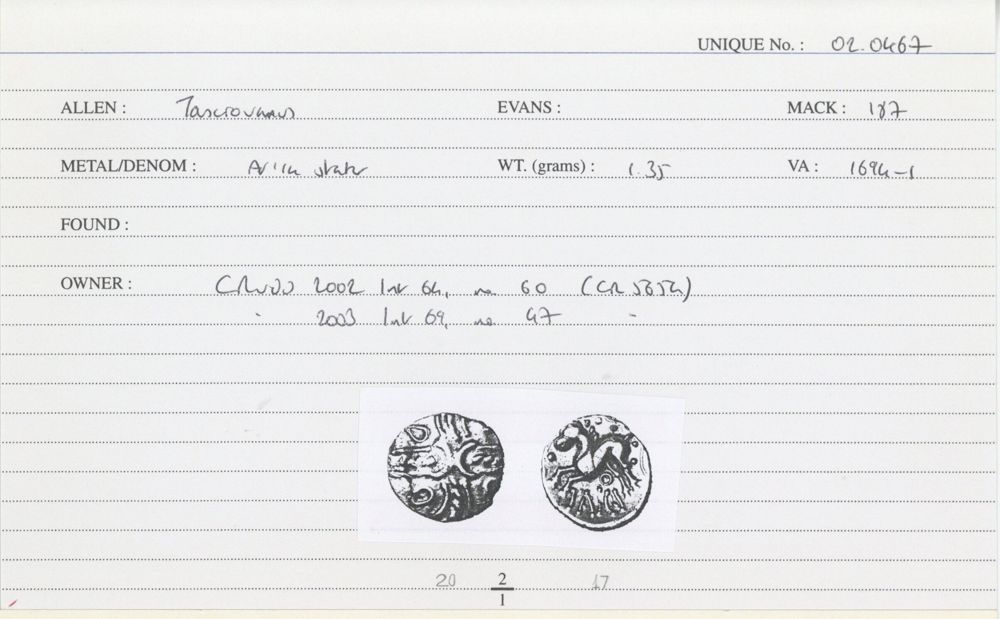 UNIQUE No. : 02.0467
ALLEN : Tasciovanus EVANS : MACK : 187
METAL/DENOM : AV 1/4 stater WT. (grams) : 1.35 VA : 1694-1
FOUND :
OWNER : CRUDD 2002 list 64, no 60 (CR 5654)
" 2003 list 69, no 47 "
20 2/1 17